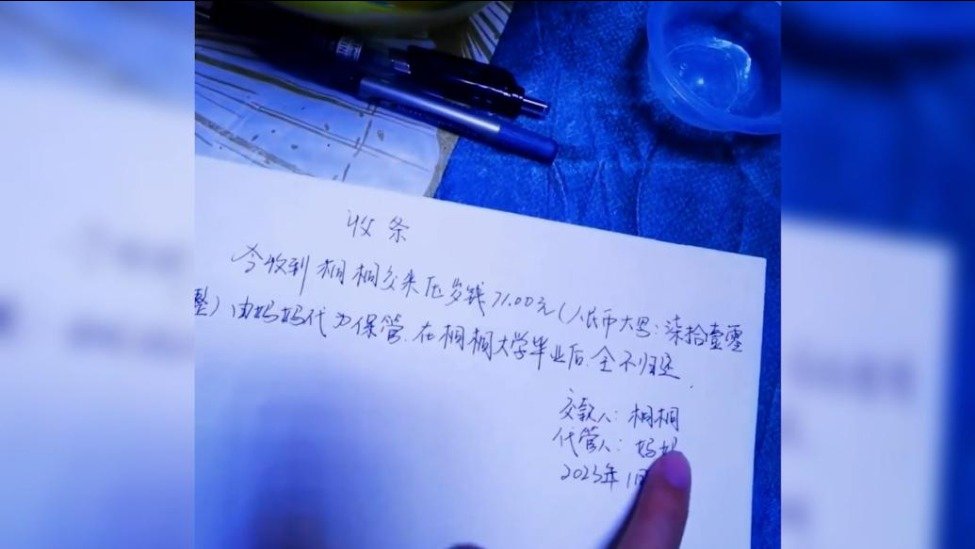 收条
今收到桐桐交来压岁钱71.00元(人民币大写:柒拾壹圆
整)由妈妈代为保管.在桐桐大学毕业后.全不归还.
交款人:桐桐
代管人:妈妈
2023年1月